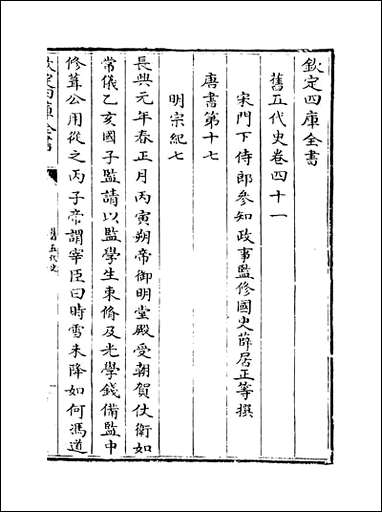 欽定四庫全書
舊五代史卷四十一
宋門下侍郎參知政事監修國史薛居正等撰
唐書第十七
明宗紀七
長興元年春正月丙寅朔帝御明堂殿受朝賀仗衛如
常儀乙亥國子監請以監學生束脩及光學錢備監中
修葺公用從之丙子帝謂宰臣曰時雪未降如何馮道
欽定四庫全書
舊五代史